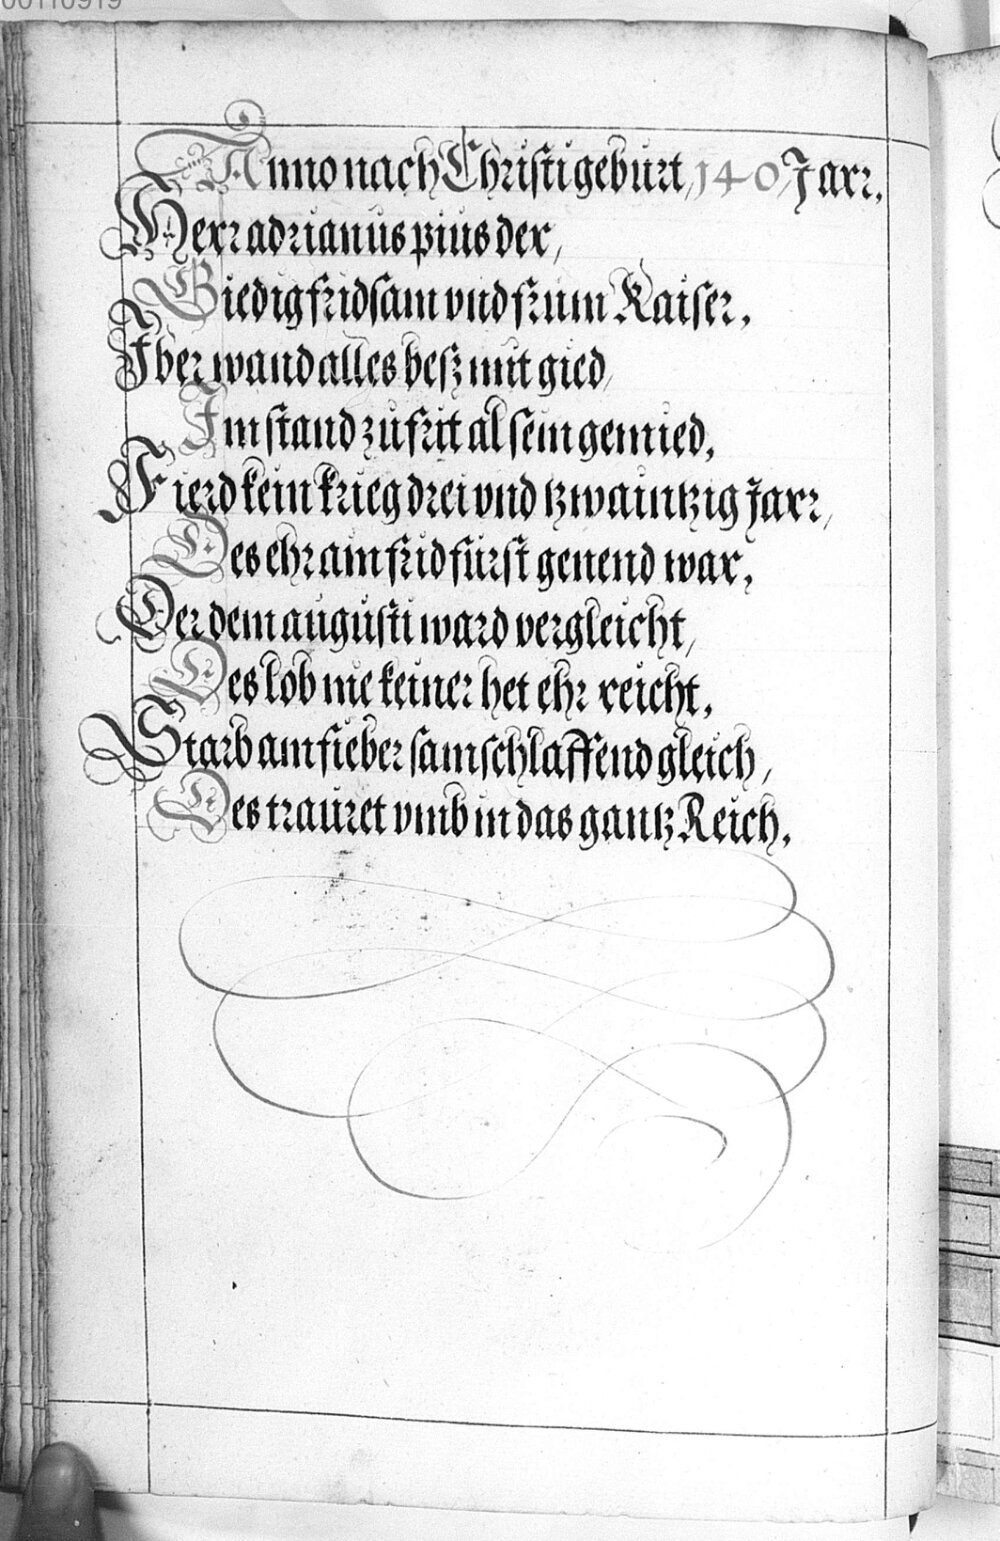 00110919
Anno nach Christi geburt, 140, Jarr.
Herr adrianus pius der,
Giedig fridsam vnd frum Kaiser,
Iber wand alles beß mit gied,
Im stand zu frit al sein gemied,
Fierd kein krieg drei vnd tzwaintzig Jarr,
Des ehr am frid fürst genend war,
Der dem augusti ward vergleicht,
Des lob nie keiner het ehr reicht,
Starb am fieber sam schlaffend gleich,
Des trauret vmb in das gantz Reich.